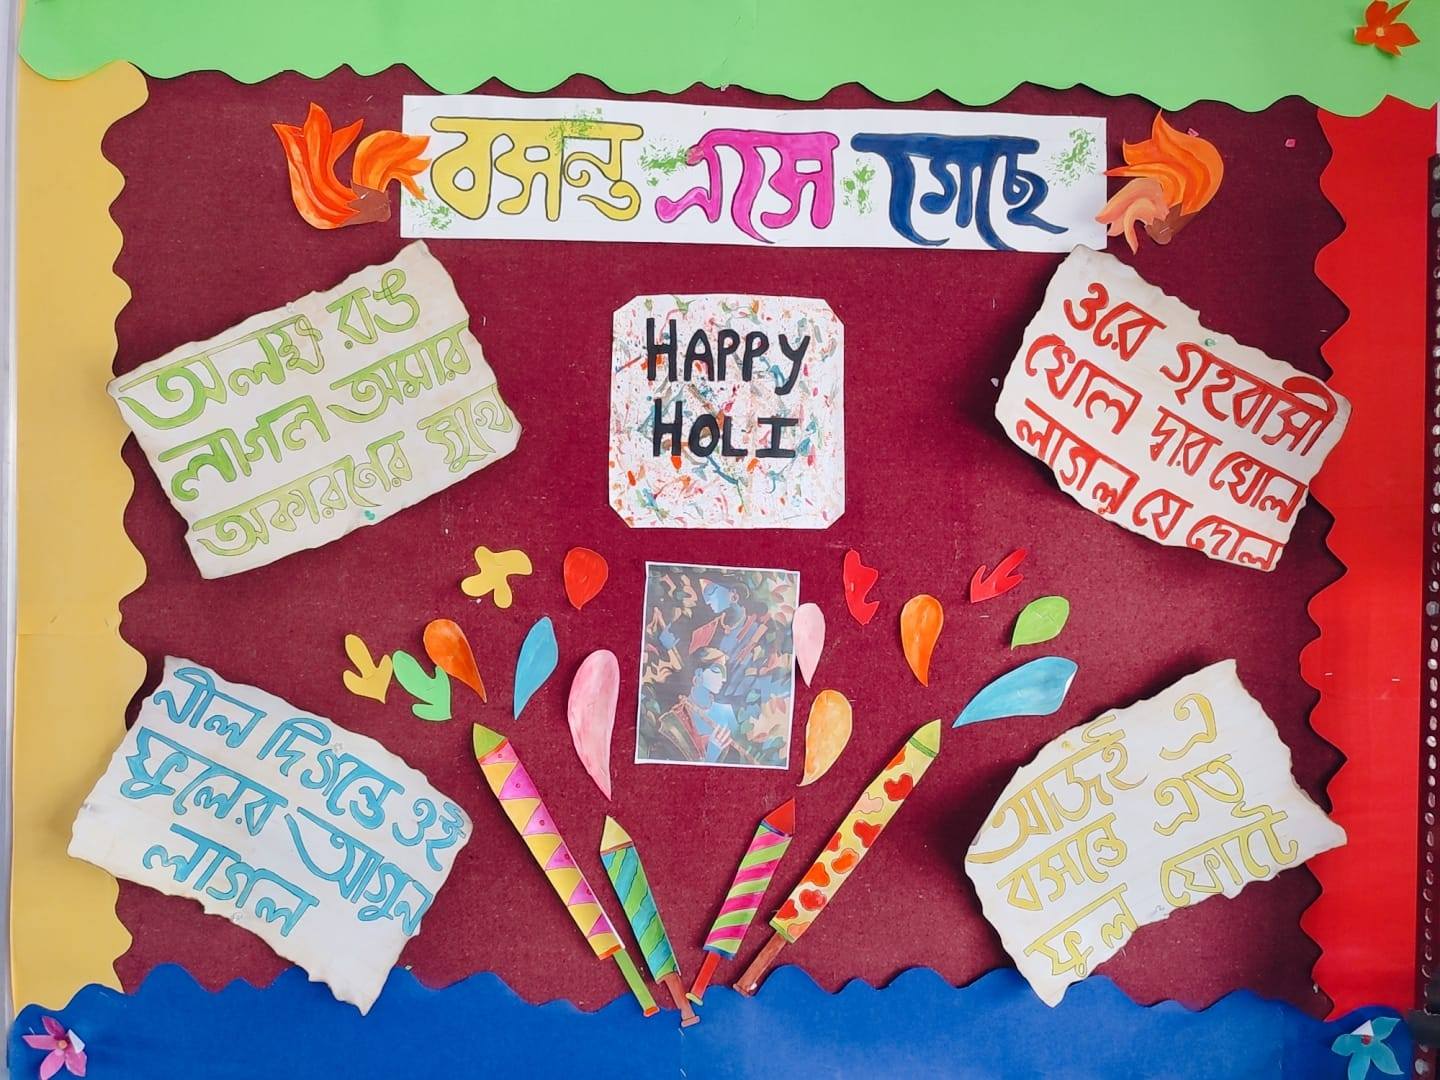 বসন্ত এসে গেছে
অলক্ষ রঙ
লাগল আমার
অকারণের সুখে
HAPPY
HOLI
ওরে গৃহবাসী
খোল দ্বার খোল
লাগল যে দোল
নীল দিগন্তে ওই
ফুলের আগুন
লাগল
আজই এ
বসন্তে এত
ফুল ফোটে